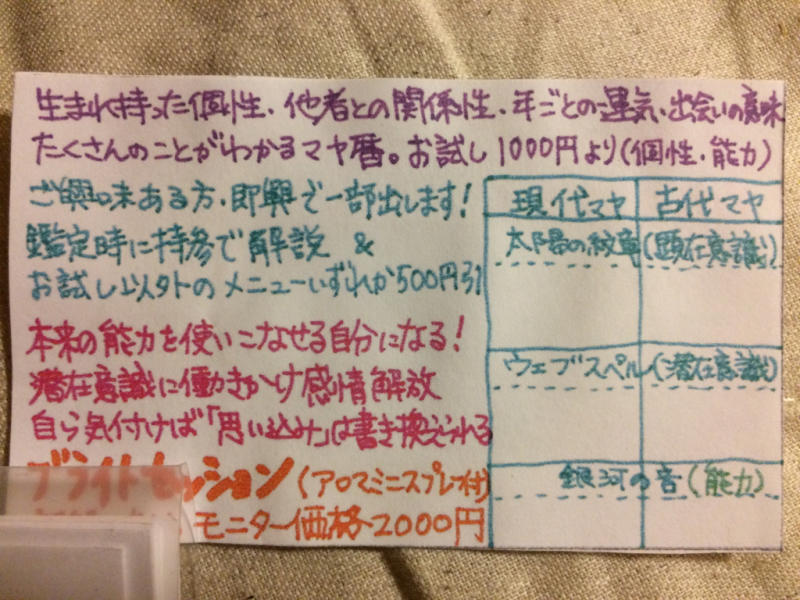 生まれ持った個性、他者との関係性、年ごとの運気、出会いの意味
たくさんのことがわかるマヤ暦。お試し1000円より(個性・能力)
ご興味ある方、即興で一部出します!
鑑定時に持参で解説 &
お試し以外のメニューいずれか500円引
本来の能力を使いこなせる自分になる!
潜在意識に働きかけ感情解放
自ら気付けば「思い込み」は書き換えられる
ブライトセッション(アロマミニスプレ付)
モニター価格2000円
現代マヤ 古代マヤ
太陽の紋章(顕在意識)
ウェブスペル(潜在意識)
銀河の音(能力)